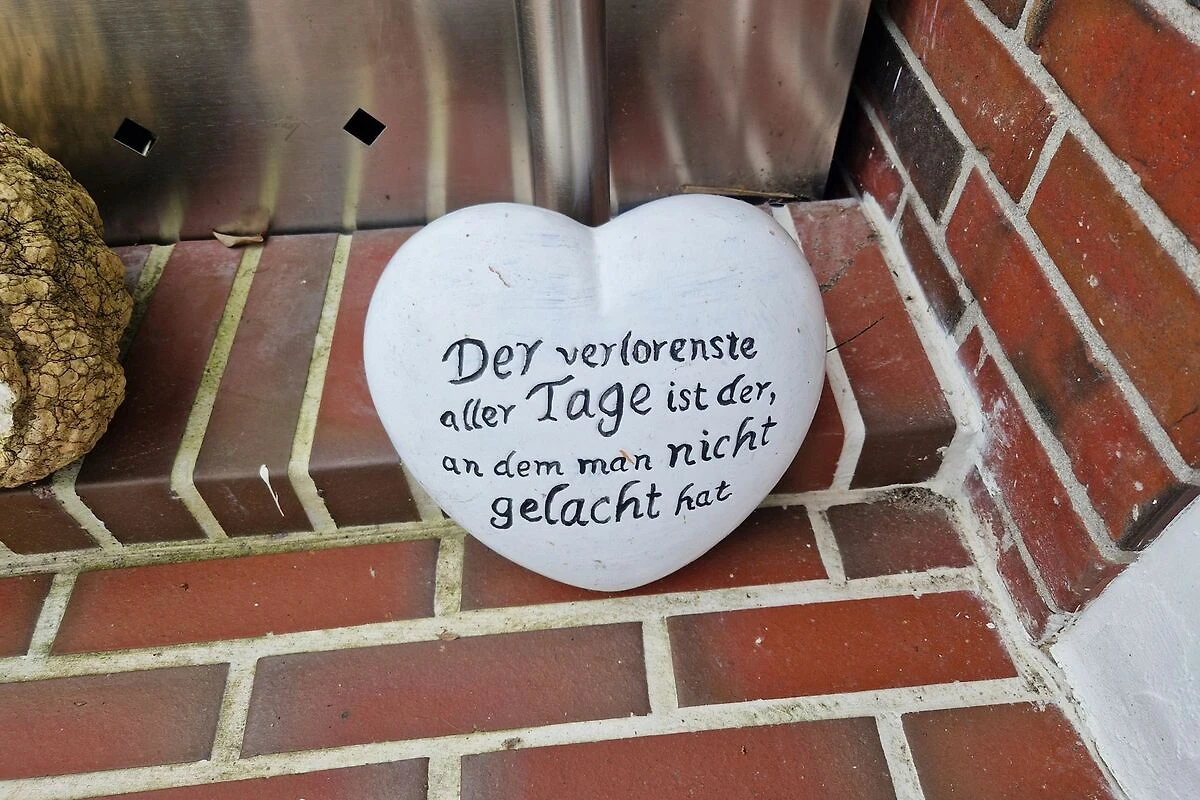 Der verlorenste
aller Tage ist der,
an dem man nicht
gelacht hat